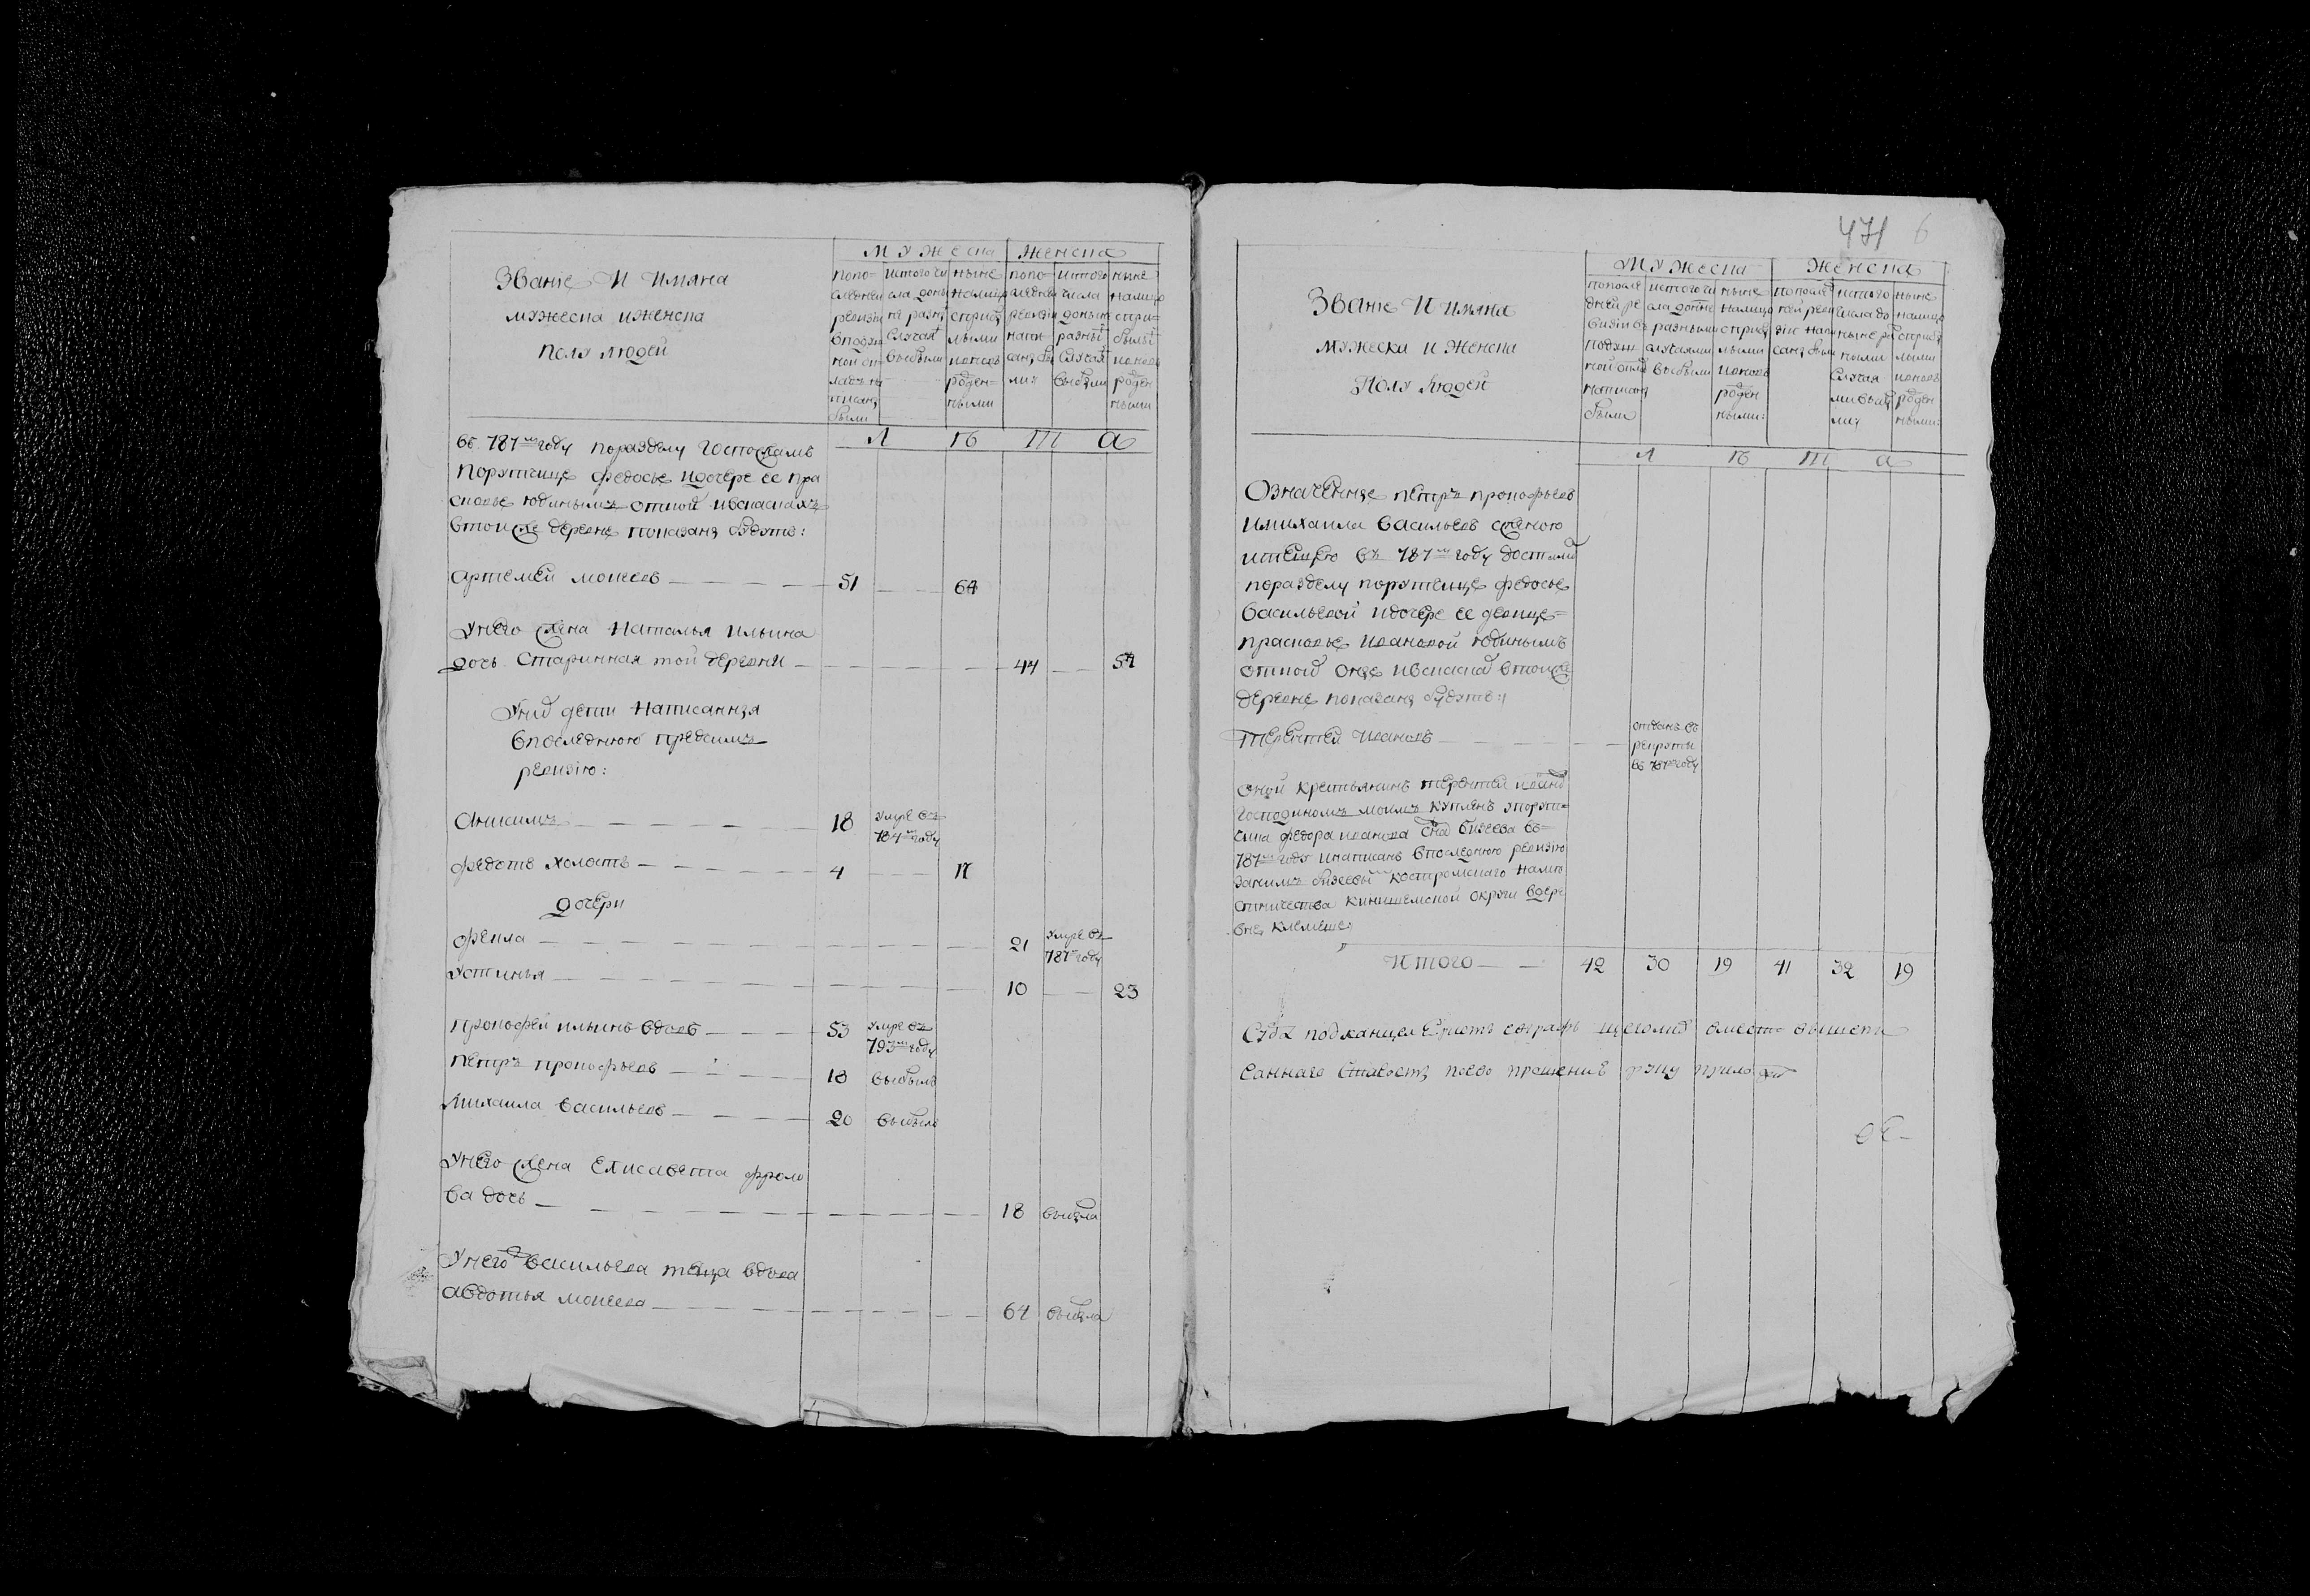 Звание И Имяна
мужеска иженска
полу людей
Мужеска
Женска
попо=
следней
ревизии
вподуш
ной ок
ладъ на
писаны
были
истого чи
сла доны
не разны
случая
выбыли
ныне
налицо
сприбы
лыми
ивновь
рожден=
ными
попо=
следне
ревизи
напи
саны бы
ли
истого
числа
доныне
разны
случая
выбыли
ныне
налицо
спри=
былы
ивновь
рожден
ными
Л ѣ т а
въ 787м году поразделу Госпожамъ
Порутчице федосье идочере ее пра
сковье юдинымъ отной ивсказкахъ
втой же деревне показаны будутъ:
Артемей Моисеев 51 64
Унего жена Наталья Ильина
дочь старинная той деревни 44 57
Уних дети написанныя
впоследнюю предсимъ
ревизию:
Онисимъ 18 умре въ
784м году
Федотъ холостъ 4 17
дочери
Фекла 21 умре въ
787м году
Устинья 10 23
Прокофей Ильинъ вдовъ 53 умре въ
793м году
Петръ Прокофьевъ 18 выбылъ
Михаила Васильевъ 20 выбылъ
Унего жена Елисавета фроло
ва дочь 18 выбыла
Унего Васильева теща вдова
Авдотья Моисеева 64 выбыла
471 6
Звание И Имяна
Мужеска и Женска
Полу людей
Мужеска
Женска
попосле
дней ре
визии въ
подуш
ной окла
написаны
были
истого чи
сла доныне
разными
случаями
выбыли
ныне
налицо
сприбы
лыми
ивновь
рожден
ными:
попослед
ней реви
зии напи
саны были
истого
числа до
ныне раз
ными
случая
ми выбы
ли
ныне
налицо
сприбы
лыми
ивновь
рожден
ными:
Л ѣ т а
Означенные Петръ Прокофьевъ
имихаила Васильевъ сженою
итещею въ 787м году достались
поразделу порутчице федосье
Васильевой идочере ее девице=
Прасковье Ивановой юдинымъ
отной оне ивсказкахъ втой же
деревне показаны будутъ:
Терентей Ивановъ отданъ въ
рекруты
въ 787м году
Оной крестьянинъ Терентей Ивановъ
Господиномъ моимъ купленъ упорут=
чика федора Иванова сна въ=
787м году инаписанъ впоследнюю ревизию
Костромскаго Наме
стничества Кинешемской округи вдере
вне Клемеше
Итого 42 30 19 41 32 19
подканцеляристъ вместо вышепи
саннаго старосты поево прошению руку приложилъ